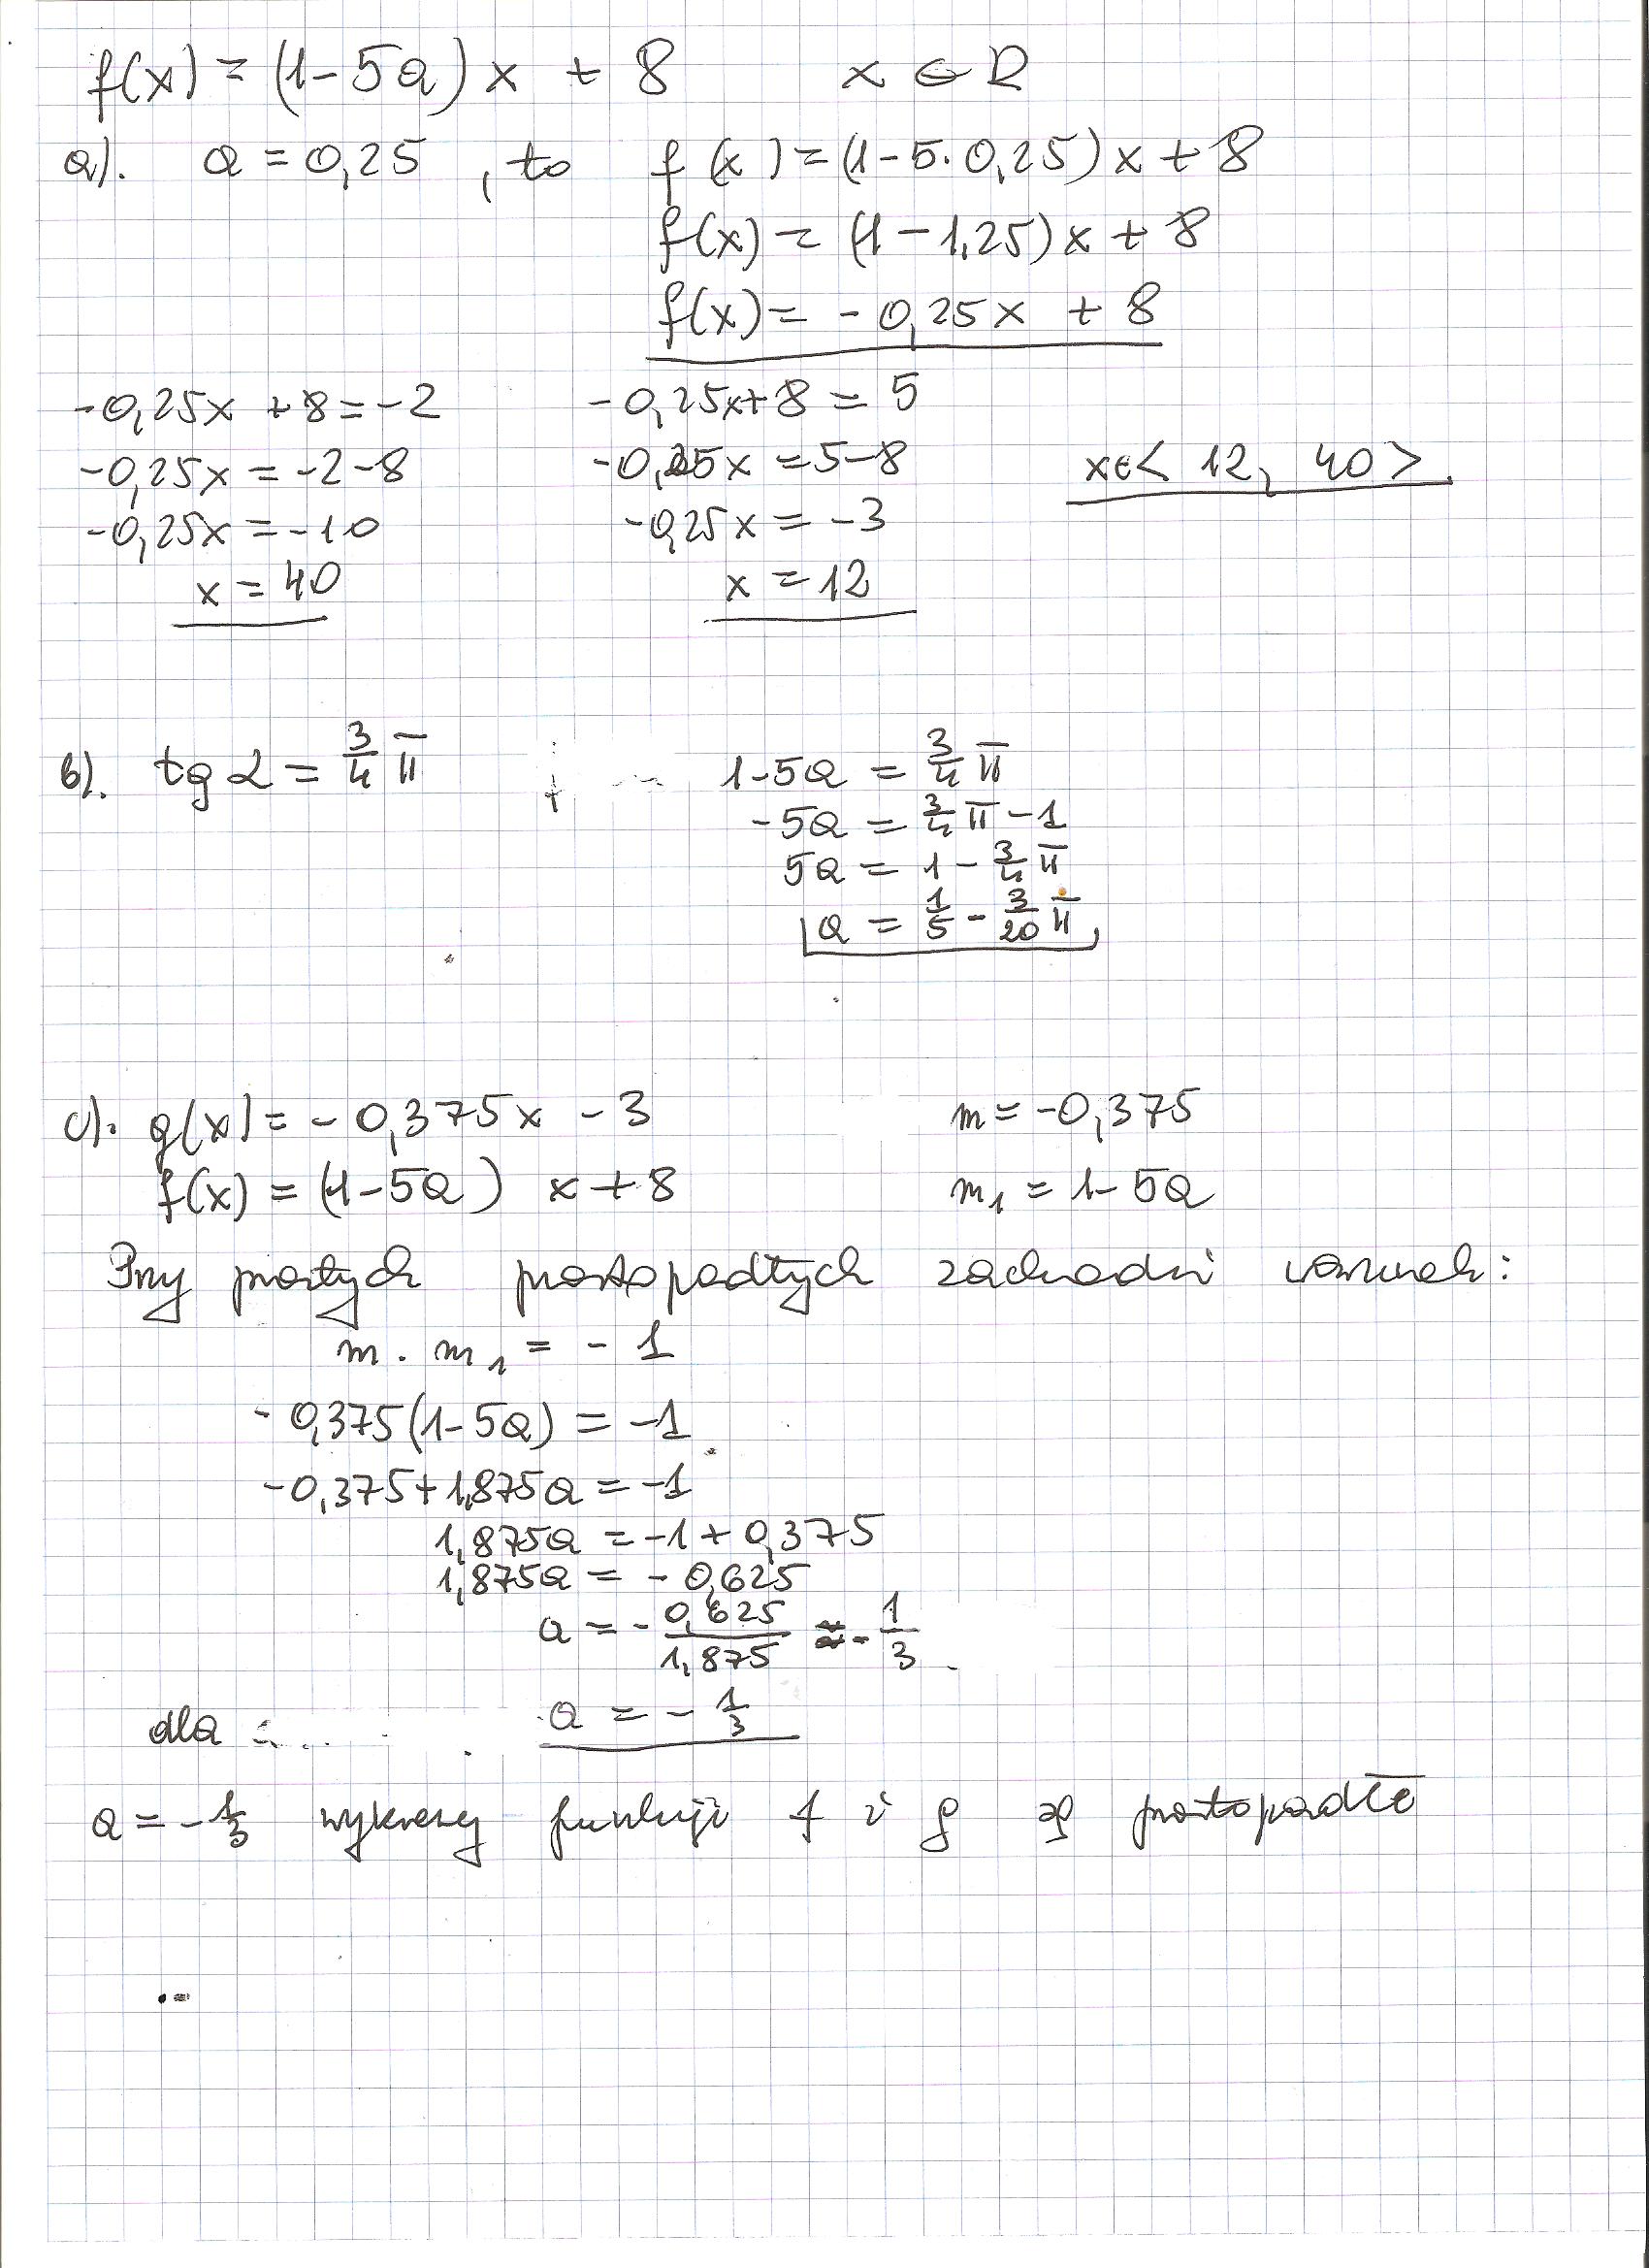 f(x) = (1-5a)x + 8 x ∈ R
a). a = 0,25 , to f(x) = (1-5·0,25)x + 8
f(x) = (1-1,25)x + 8
f(x) = -0,25x + 8
-0,25x + 8 = -2 -0,25x + 8 = 5
-0,25x = -2-8 -0,25x = 5-8 x∈< 12, 40 >
-0,25x = -10 -0,25x = -3
x = 40 x = 12
b). tg α = 3/4 π 1-5a = 3/4 π
-5a = 3/4 π - 1
5a = 1 - 3/4 π
a = 1/5 - 3/20 π
c). g(x) = -0,375x - 3 m = -0,375
f(x) = (1-5a) x + 8 m₁ = 1-5a
Przy prostych prostopadłych zachodzi warunek:
m · m₁ = -1
-0,375(1-5a) = -1
-0,375+1,875a = -1
1,875a = -1+0,375
1,875a = -0,625
a = - 0,625/1,875 = - 1/3
dla a = - 1/3
a = - 1/3 wykresy funkcji f i g są prostopadłe